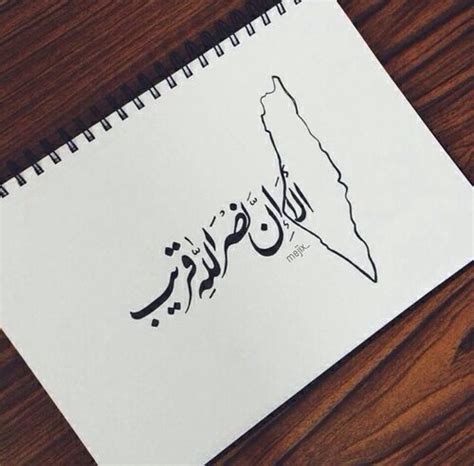 الا إِنَّ نَصْرَ اللّهِ قريب
mejix_